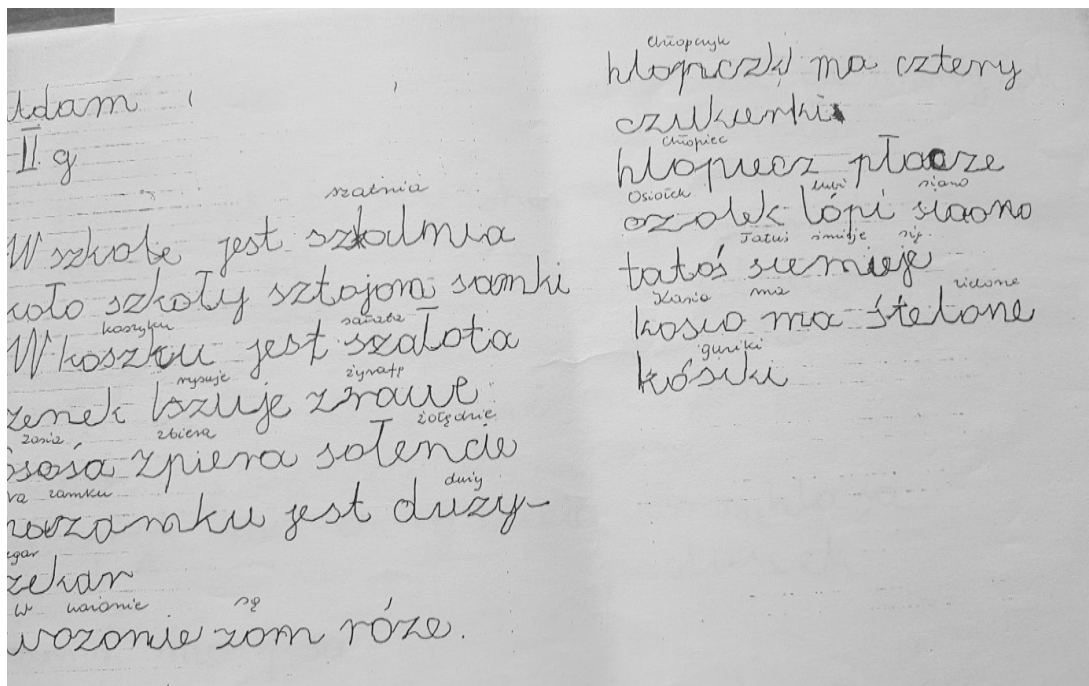 Adam
II g
szatnia
W szkole jest szkadmia
koło szkoły sztojom samki
koszyku sałata
W koszku jest szałota
rysuje żyrafę
zenek lszuje zrawe
Zosia zbiera żołędzie
sosia zpiera solencie
na zamku duży
nazzamku jest duzy-
zegar
zekar
w wazonie są
wozonie zom róze.
Chłopczyk
hłopiczki ma cztery
czukierki
Chłopiec
hłopiecz płacze
Osiołek lubi siano
ozolek lópi siaono
Tatuś śmieje się
tatoś siemieje
Kasia ma zielone
kosio ma śtelone
guziki
kósiki